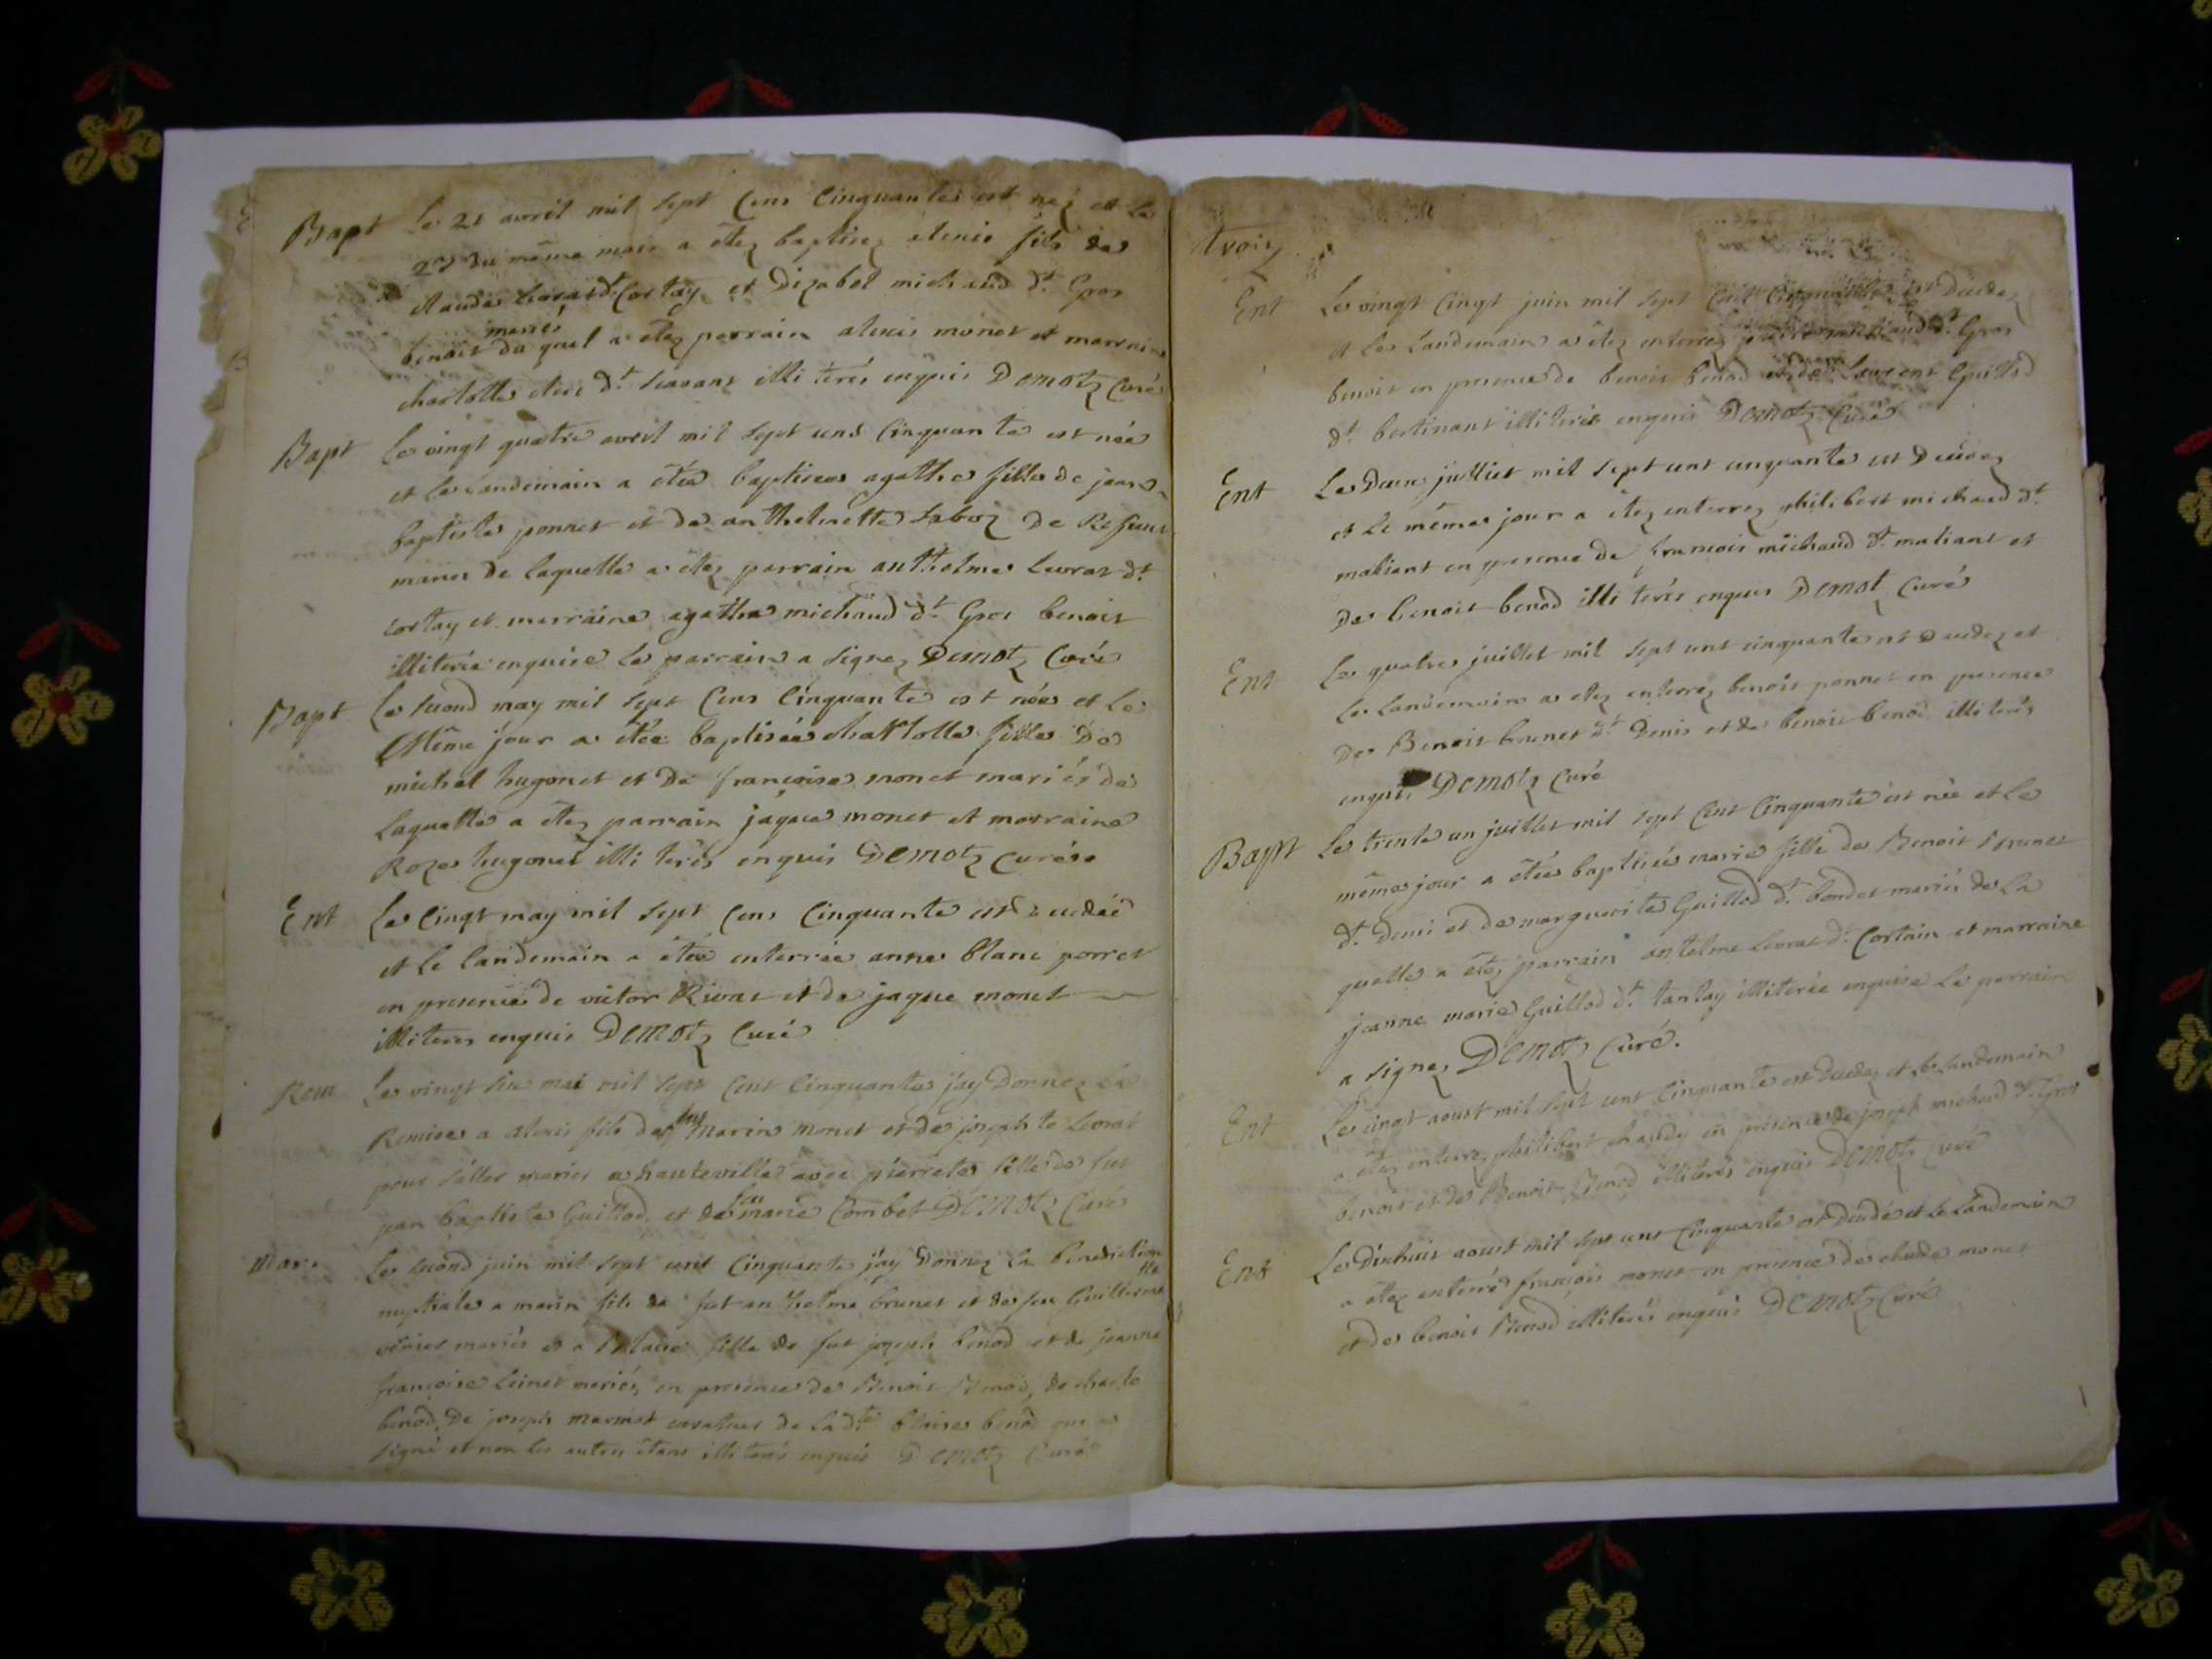 Bapt Le 21 avril mil sept Cens Cinquante est nez et le
du même mois a étez baptisez alexis fils de
Claude Cortay et Dizabel michaud dt. Gros
benoit mariés du quel a étez parrain alexis monet et marraine
charlotte dt. illiterés enquis Demotz Curé
Bapt Le vingt quatre avril mil sept cens Cinquante est née
et le landemain a étée baptisée agathe fille de jean
baptiste ponnet et de anthelmette de
mariés de laquelle a étez parrain anthelme Levrat dt.
cortay et marraine agathe michaud dt. Gros benoit
illiterée enquise le parrain a signez Demotz Curé
Bapt Le second may mil sept Cens Cinquante est née et le
Même jour a étée baptisée charlotte fille de
michel hugonet et de françoise monet mariés de
Laquelle a étez parrain jaque monet et marraine
Roze hugonet illiterés enquis Demotz Curé
Ent Le Cinqt may mil sept Cens Cinquante est decedée
et le landemain a étée enterrée anne blanc porret
en presence de victor Rivat et de jaque monet
illiteres enquis Demotz Curé
Rem Le vingt six mai mil sept Cent Cinquante j'ay Donnez la
Remise a alexis fils de marin monet et de josephte Levrat
pour s'aller marier a hauteville avec pierrete fille de fut
jean baptiste Guillod et de feu marie Combet Demotz Curé
Mar. Le second juin mil sept cent Cinquante j'ay Donnez la benediction
nuptiale a marin fils de fut anthelme brunet et de feu Guillermette
mariés et a Blaise fille de fut joseph benod et de jeanne
françoise mariés, en presence de Benoit Benod, de charle
benod, de joseph marinet curateur de la dte blaise benod qui a
signé et non les autres étans illiterés enquis Demotz Curé
trois
Ent Le vingt Cinqt juin mil sept Cent Cinquante est decedez
et le landemain a étez enterrez michaud dt. Gros
benoit en presence de benoit benod et de Laurent Guillod
dt. bertinant illiterés enquis Demotz Curé
Ent Le Deux julliet mil sept cent cinquante est decedez
et le même jour a étez enterrez philibert michaud dt.
matiant en presence de francois michaud dt. matiant et
de benoit benod illiterés enquis Demotz Curé
Ent Le quatre juillet mil sept cent cinquante est decedez et
le landemain a étez enterrez benoit ponnet en presence
de Benoit brunet dt. Denis et de benoit benod illiterés
enquis Demotz Curé
Bapt Le trente un juillet mil sept Cent Cinquante est née et le
même jour a étée baptisée marie fille de Benoit Brunet
dt. Denis et de marguerite Guillod dt. bondet mariés de la
quelle a étez parrain antelme Levrat dt. Cortain et marraine
jeanne marie Guillod dt. tantay illiterée enquise le parrain
a signez Demotz Curé.
Ent Le cinqt aoust mil sept cent Cinquante est decedez et le landemain
a étez enterrez philibert chaudy en presence de joseph michaud dt. Gros
benoit et de Benoit Benod illiterés enquis Demotz Curé
Ent Le Dixhuit aoust mil sept cent Cinquante est decedé et le landemain
a étez enterré françois monet en presence de claude monet
et de benoit Benod illiterés enquis Demotz Curé